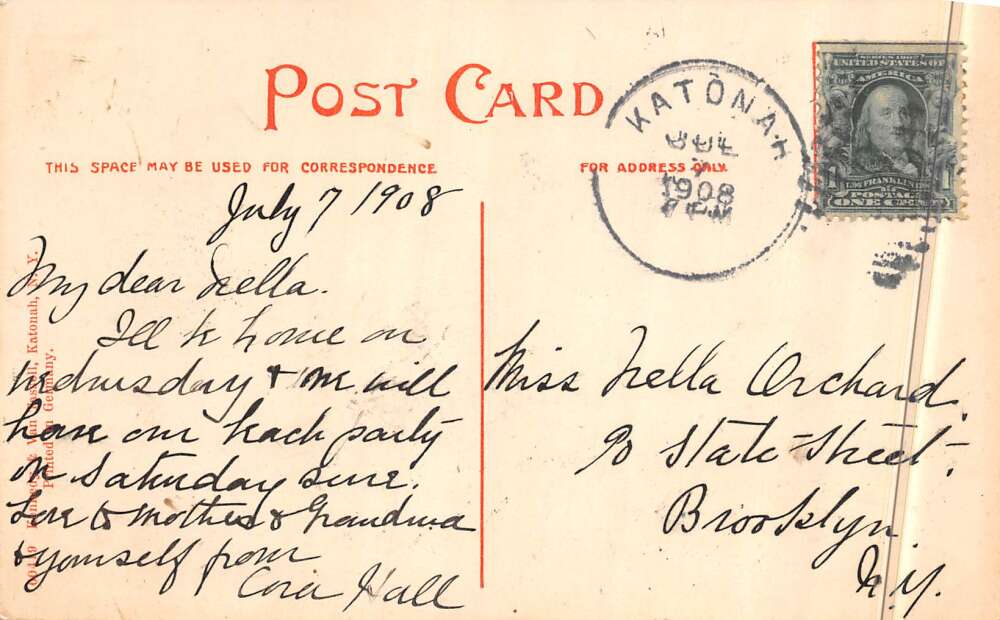 POST CARD
THIS SPACE MAY BE USED FOR CORRESPONDENCE
FOR ADDRESS ONLY.
KATONAH
JUL
7
1908
PM
SERIES 1902
UNITED STATES OF
AMERICA
FRANKLIN
POSTAGE
1 ONE CENT 1
July 7 1908
My dear Nella.
I'll be home on
Wednesday & we will
have our beach party
on Saturday sure.
Love to Mother & Grandma
& yourself from
Cora Hall
Miss Nella Orchard.
90 State-Street.
Brooklyn
N.Y.
Katonah, N. Y.
Printed in Germany.